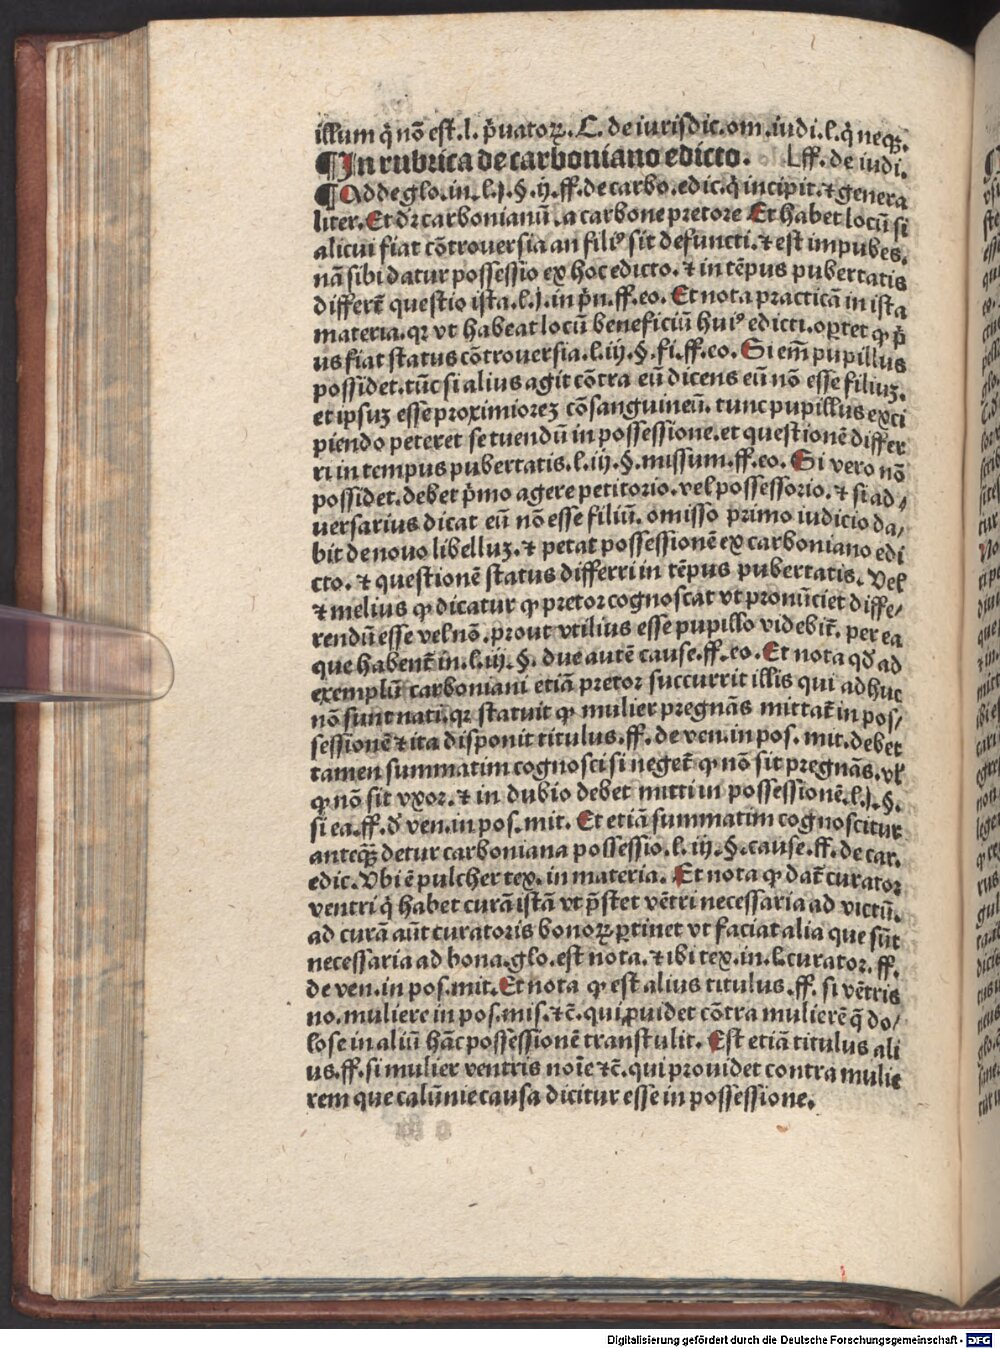 illum q̇ nō est.l. p̄uatoꝝ. C. de iurisdic.om.iudi.l.q̇ neqꝫ.
¶In rubrica de carboniano edicto. Lff. de iudi.
¶Adde glo.in.l.j.§.ij.ff.de carbo.edic.q̇ incipit.⁊ genera
liter. Et dr̄ carbonianū.a carbone pretore Et habet locū si
alicui fiat cōtrouersia an filiꝰ sit defuncti.⁊ est impubes.
nā sibi datur possessio ex hoc edicto.⁊ in tēpus pubertatis
differt̄ questio ista.l.j.in p̄n.ff.eo. Et nota practicā in ista
materia.qꝛ vt habeat locū beneficiū huiꝰ edicti.oꝑtet ꝙ p̄
us fiat status cōtrouersia.l.iij.§.fi.ff.eo. Si em̄ pupillus
possidet.tūc si alius agit cōtra eū dicens eū nō esse filiuꝫ.
et ipsuꝫ esse proximioreꝫ cōsanguineū. tunc pupillus exci
piendo peteret se tuendū in possessione.et questionē differ
ri in tempus pubertatis.l.iij.§.missum.ff.eo. Si vero nō
possidet.debet p̄mo agere petitorio.vel possessorio.⁊ si ad/
uersarius dicat eū nō esse filiū. omisso primo iudicio da/
bit de nouo libelluꝫ.⁊ petat possessionē ex carboniano edi
cto.⁊ questionē status differri in tēpus pubertatis. Vel
⁊ melius ꝙ dicatur ꝙ pretor cognoscat vt pronūciet diffe/
rendū esse vel nō.prout vtilius esse pupillo videbit̄. per ea
que habent̄ in.l.iij.§. due autē cause.ff.eo. Et nota qd̄ ad
exemplū carboniani etiā pretor succurrit illis qui adhuc
nō sunt nati.qꝛ statuit ꝙ mulier pregnās mittat̄ in pos/
sessionē ⁊ ita disponit titulus.ff.de ven.in pos.mit.debet
tamen summatim cognosci si neget̄ ꝙ nō sit pregnās.vl̄
ꝙ nō sit vxor.⁊ in dubio debet mitti in possessionē.l.j.§.
si ea.ff.d̄ ven.in pos.mit. Et etiā summatim cognoscitur
anteqꝫ detur carboniana possessio.l.iij.§.cause.ff.de car.
edic. Vbi ē pulcher tex.in materia. Et nota ꝙ dat̄ curator
ventri q̇ habet curā istā vt p̄stet vētri necessaria ad victū.
ad curā aūt curatoris bonoꝝ ꝑtinet vt faciat alia que sūt
necessaria ad bona.glo.est nota.⁊ ibi tex.in.l.curator.ff.
de ven.in pos.mit. Et nota ꝙ est alius titulus.ff. si vētris
no.muliere in pos.mis.⁊c̄.qui ꝓuidet cōtra mulierē q̄ do/
lose in aliū hāc possessionē transtulit. Est etiā titulus ali
us.ff.si mulier ventris noīe ⁊c̄.qui prouidet contra mulie
rem que calūnie causa dicitur esse in possessione.
Digitalisierung gefördert durch die Deutsche Forschungsgemeinschaft - DFG